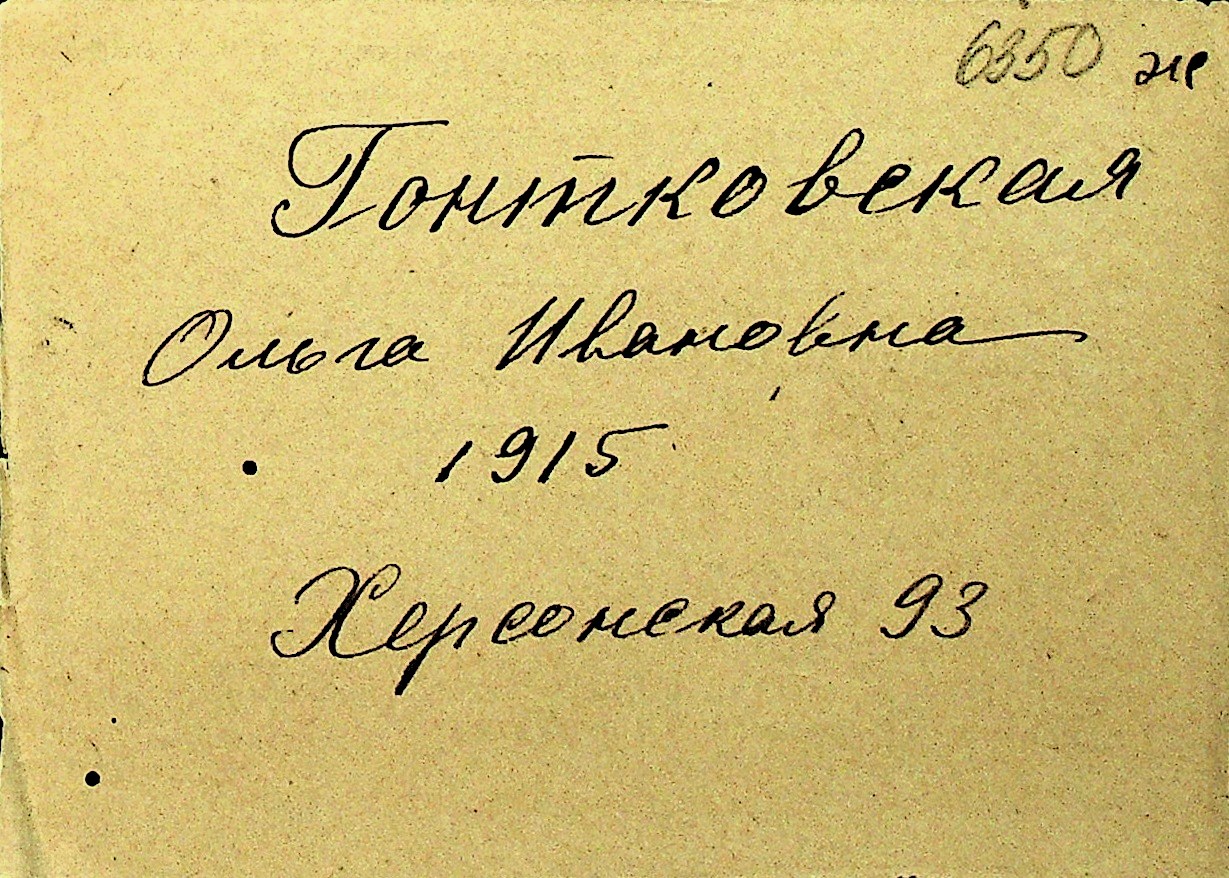 6350 же
Гонтковская
Ольга Ивановна
1915
Херсонская 93